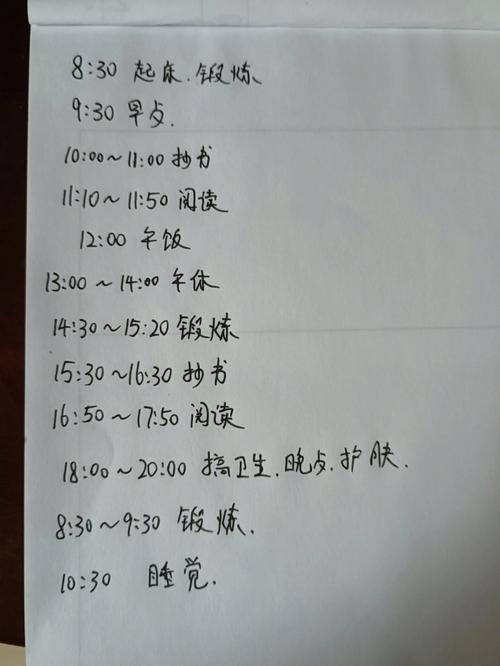 8:30 起床、锻炼
9:30 早点.
10:00~11:00 抄书
11:10~11:50 阅读
12:00 午饭
13:00~14:00 午休
14:30~15:20 锻炼
15:30~16:30 抄书
16:50~17:50 阅读
18:00~20:00 搞卫生、晚点、护肤.
8:30~9:30 锻炼.
10:30 睡觉.